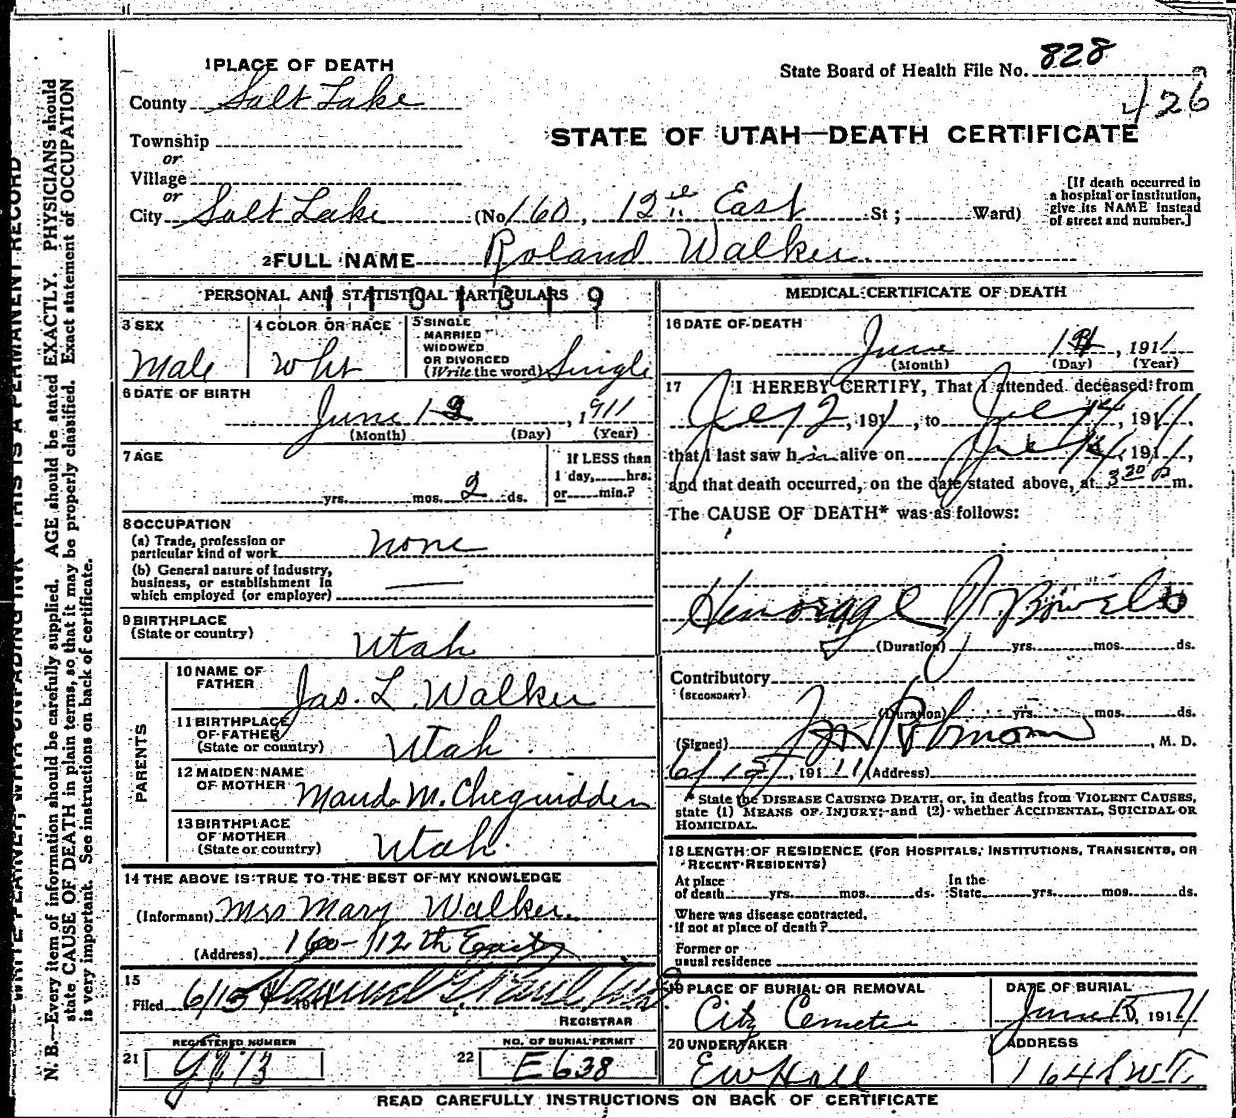 1 PLACE OF DEATH
State Board of Health File No. 828
County Salt Lake
426
Township
or
Village
or
STATE OF UTAH—DEATH CERTIFICATE
City Salt Lake (No 160, 12th East St; Ward)
[If death occurred in
a hospital or institution,
give its NAME instead
of street and number.]
2 FULL NAME Roland Walker
PERSONAL AND STATISTICAL PARTICULARS
1101819
3 SEX
Male
4 COLOR OR RACE
Wht
5 SINGLE
MARRIED
WIDOWED
OR DIVORCED
(Write the word) Single
6 DATE OF BIRTH
June 12, 1911
(Month) (Day) (Year)
7 AGE
yrs. mos. 2 ds.
If LESS than
1 day, hrs.
or min.?
8 OCCUPATION
(a) Trade, profession or
particular kind of work none
(b) General nature of industry,
business, or establishment in
which employed (or employer)
9 BIRTHPLACE
(State or country) Utah
PARENTS
10 NAME OF
FATHER Jas. L. Walker
11 BIRTHPLACE
OF FATHER
(State or country) Utah.
12 MAIDEN NAME
OF MOTHER Maude M.
13 BIRTHPLACE
OF MOTHER
(State or country) Utah.
14 THE ABOVE IS TRUE TO THE BEST OF MY KNOWLEDGE
(Informant) Mrs Mary Walker.
(Address) 160-12th East
15
Filed 6/15 191
REGISTRAR
21 REGISTERED NUMBER
22 NO. OF BURIAL PERMIT
E638
MEDICAL CERTIFICATE OF DEATH
16 DATE OF DEATH
June 14, 1911
(Month) (Day) (Year)
17 I HEREBY CERTIFY, That I attended deceased from
12, 1911, to 14, 1911,
that I last saw him alive on 14, 1911,
and that death occurred, on the date stated above, at 3 20 P m.
The CAUSE OF DEATH* was as follows:
Hemorrage of Bowels
(Duration) yrs. mos. ds.
Contributory
(SECONDARY)
(Duration) yrs. mos. ds.
(Signed) , M. D.
6/15, 1911 (Address)
* State the DISEASE CAUSING DEATH, or, in deaths from VIOLENT CAUSES,
state (1) MEANS OF INJURY; and (2) whether ACCIDENTAL, SUICIDAL OR
HOMICIDAL.
18 LENGTH OF RESIDENCE (FOR HOSPITALS, INSTITUTIONS, TRANSIENTS, OR
RECENT RESIDENTS)
At place
of death yrs. mos. ds.
In the
State yrs. mos. ds.
Where was disease contracted,
if not at place of death?
Former or
usual residence
19 PLACE OF BURIAL OR REMOVAL
City Cemetery
DATE OF BURIAL
June 15, 1911
20 UNDERTAKER
E W Hall
ADDRESS
164 S W. T.
READ CAREFULLY INSTRUCTIONS ON BACK OF CERTIFICATE
WRITE PLAINLY, WITH UNFADING INK—THIS IS A PERMANENT RECORD
N. B.—Every item of information should be carefully supplied. AGE should be stated EXACTLY. PHYSICIANS should
state CAUSE OF DEATH in plain terms, so that it may be properly classified. Exact statement of OCCUPATION
is very important. See instructions on back of certificate.